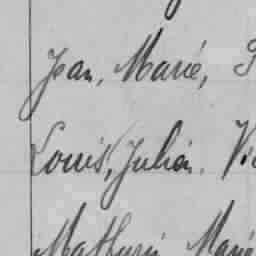 Jean, Marie,
Louis, Julien.
Mathurin Marie